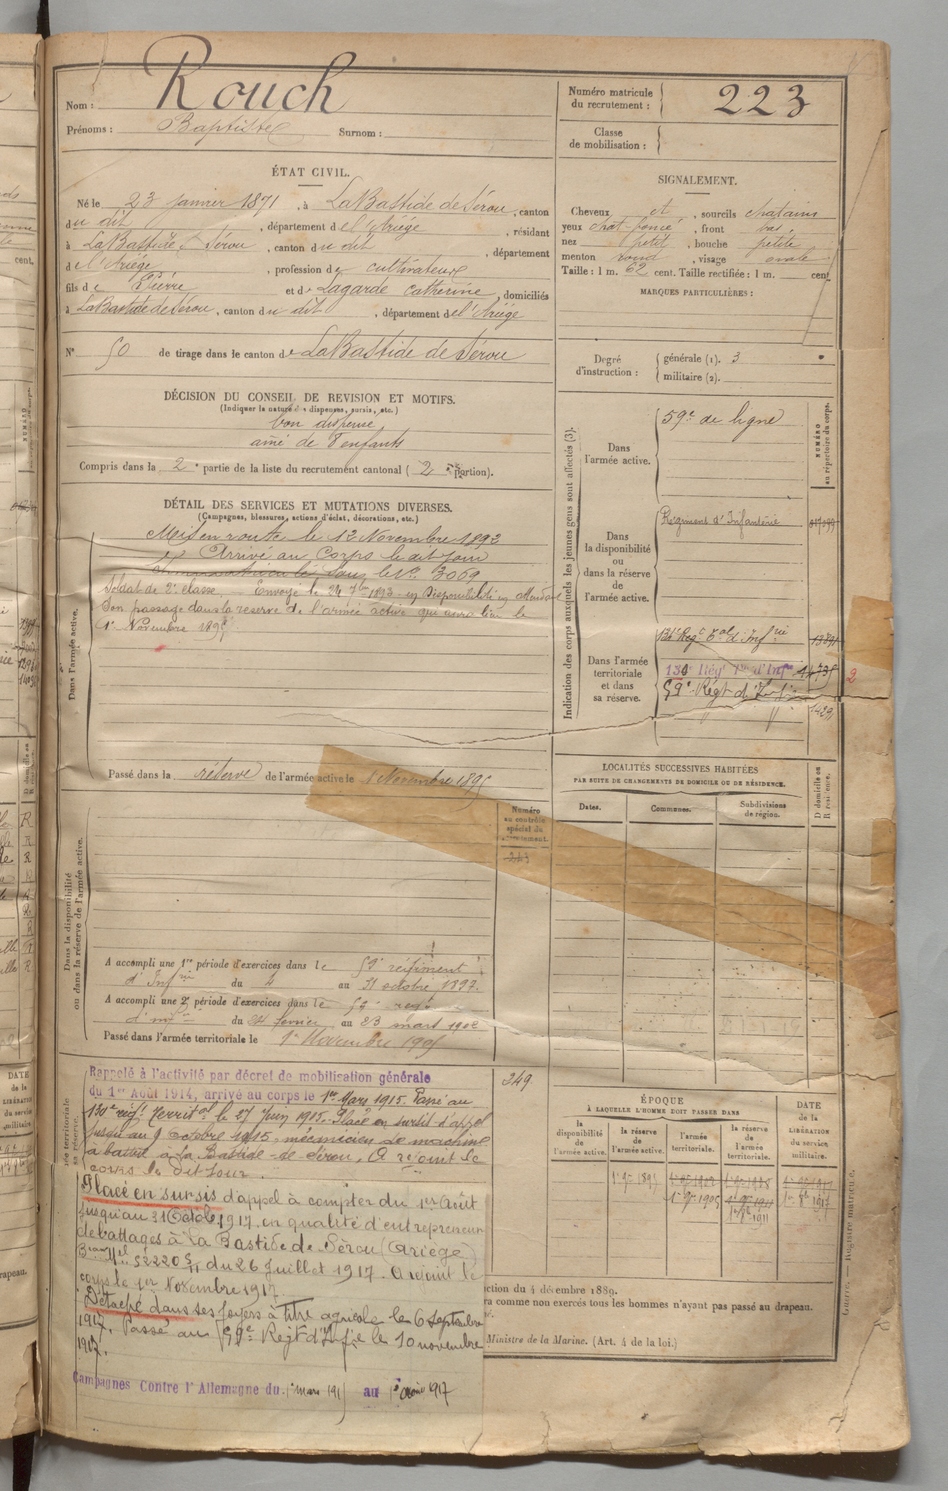 Nom : Rouch
Prénoms : Baptiste Surnom :
ÉTAT CIVIL.
Né le 23 janvier 1871, à LaBastide de Sérou, canton
du dit, département de l'Ariége, résidant
à LaBastide de Sérou, canton du dit, département
de l'Ariége, profession de cultivateur
fils de Pierre et de Lagarde Catherine, domiciliés
à LaBastide de Sérou, canton du dit, département de l'Ariége
N° 50 de tirage dans le canton de LaBastide de Sérou
DÉCISION DU CONSEIL DE REVISION ET MOTIFS.
(Indiquer la nature des dispenses, sursis, etc.)
bon dispensé
ainé de 7 enfants
Compris dans la 2e partie de la liste du recrutement cantonal (2e portion).
DÉTAIL DES SERVICES ET MUTATIONS DIVERSES.
(Campagnes, blessures, actions d'éclat, décorations, etc.)
Dans l'armée active.
Mis en route le 12 Novembre 1892
et Arrivé au Corps le dit jour
et immatriculé sous le N° 3069
Soldat de 2e classe. Envoyé le 24 7bre 1893 en Disponibilité en attendant
Son passage dans la réserve de l'armée active qui aura lieu le
1er Novembre 1895
Passé dans la réserve de l'armée active le 1 Novembre 1895
Dans la disponibilité
ou dans la réserve de l'armée active.
Numéro
au contrôle
spécial du
recrutement.
243
A accompli une 1re période d'exercices dans le 59e régiment
d'Infrie du 4 au 31 octobre 1897.
A accompli une 2e période d'exercices dans le 59e regt
d'infie du 24 fevrier au 23 mars 1902
Passé dans l'armée territoriale le 1er Novembre 1905
249
Rappelé à l'activité par décret de mobilisation générale
du 1er Août 1914, arrivé au corps le 1er Mars 1915. Passé au
130e régt. territal le 27 Juin 1915. Placé en sursis d'appel
jusqu'au 9 octobre 1915, mécanicien de machine
à battre, à la Bastide-de-Sérou. A rejoint le
corps le dit jour.
Placé en sursis d'appel à compter du 1er Août
jusqu'au 31 Octob 1917 en qualité d'entrepreneur
de battages à La Bastide de Sérou (Ariège)
52220 du 26 Juillet 1917. A rejoint le
corps le 1er Novembre 1917
Détaché dans ses foyers à titre agricole le 6 Septembre
1917. Passé au 59e Regt d'Infie le 10 novembre
1917.
Campagnes Contre l'Allemagne du 1er mars 1915 au 1er Aout 1917
Numéro matricule
du recrutement : 223
Classe
de mobilisation :
SIGNALEMENT.
Cheveux et, sourcils chatains
yeux chat-foncé, front bas
nez petit, bouche petite
menton rond, visage ovale
Taille : 1 m. 62 cent. Taille rectifiée : 1 m. cent
MARQUES PARTICULIÈRES :
Degré
d'instruction :
générale (1). 3
militaire (2).
Indication des corps auxquels les jeunes gens sont affectés (3).
NUMÉRO
au répertoire du corps.
Dans
l'armée active.
59e de ligne
Dans
la disponibilité
ou
dans la réserve
de
l'armée active.
Régiment d'Infanterie
Dans l'armée
territoriale
et dans
sa réserve.
130e Régt Tal d'Infie
59e Régt d'Infie
LOCALITÉS SUCCESSIVES HABITÉES
PAR SUITE DE CHANGEMENTS DE DOMICILE OU DE RÉSIDENCE.
Dates. Communes. Subdivisions
de région.
D domicile ou
R résidence.
ÉPOQUE
À LAQUELLE L'HOMME DOIT PASSER DANS
DATE
de la
LIBÉRATION
du service
militaire.
la
disponibilité
de l'armée active.
la réserve
de
l'armée active.
l'armée
territoriale.
la réserve
de
l'armée
territoriale.
1er 9bre 1895
1er 9bre 1905
1er 8bre 1911
1er 8bre 1917
ction du 4 décembre 1889.
ra comme non exercés tous les hommes n'ayant pas passé au drapeau.
Ministre de la Marine. (Art. 4 de la loi.)
Registre matricule.